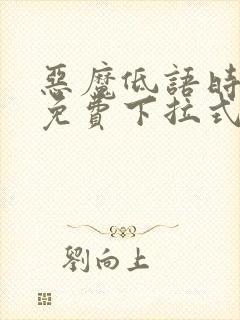 惡魔低語時
免費下拉式
劉向上